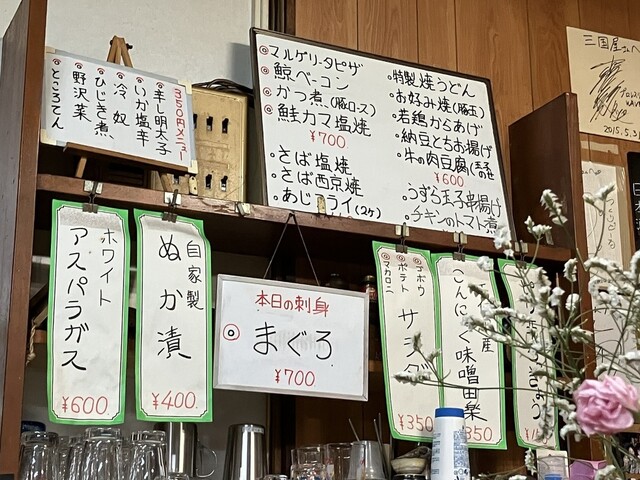 350円メニュー
辛し明太子
いか塩辛
冷奴
ひじき煮
野沢菜
ところてん
◎マルゲリータピザ
◎鯨ベーコン
◎かつ煮(豚ロース)
◎鮭カマ塩焼
¥700
・さば塩焼
・さば西京焼
・あじフライ(2ケ)
・特製焼うどん
・お好み焼(豚玉)
・若鶏からあげ
・納豆とちお揚げ
・牛の肉豆腐
¥600
・うずら玉子串揚げ
・チキンのトマト煮
三国屋さんへ
2015.5.3
ホワイト
アスパラガス
¥600
自家製
ぬか漬
¥400.
本日の刺身
◎まぐろ
¥700
◎ゴボウ
◎ポテト
◎マカロニ
サラダ
¥350
こんにゃく味噌田楽